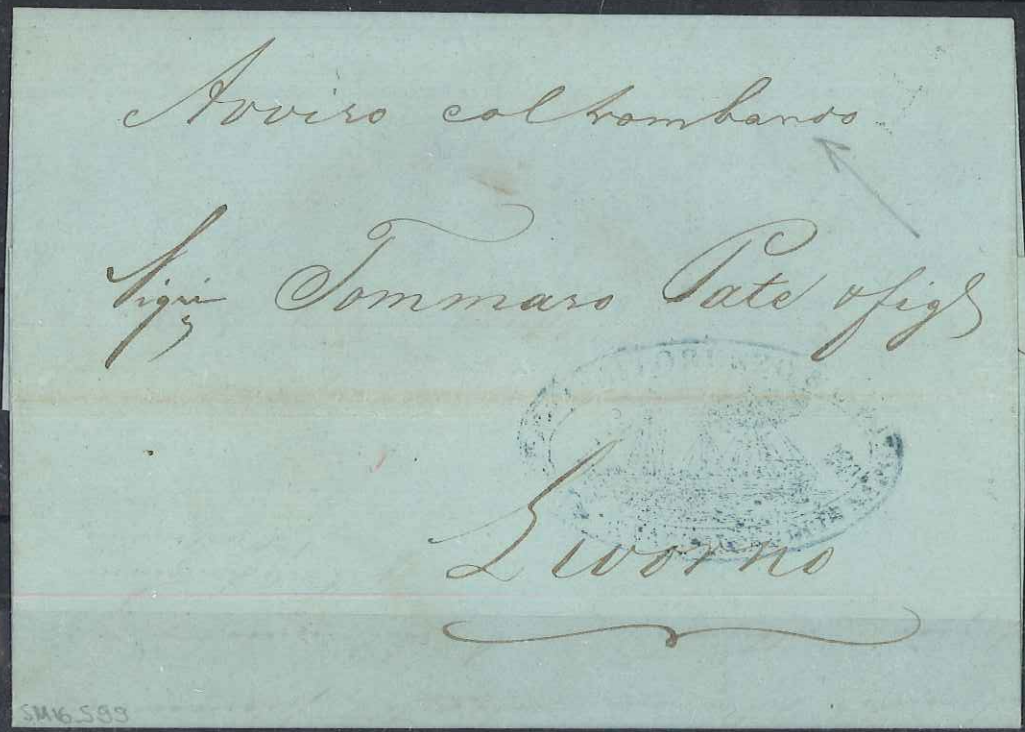 Avviso col trombano
Sigri Tommaso Pate e figl
Livorno
SM16_599